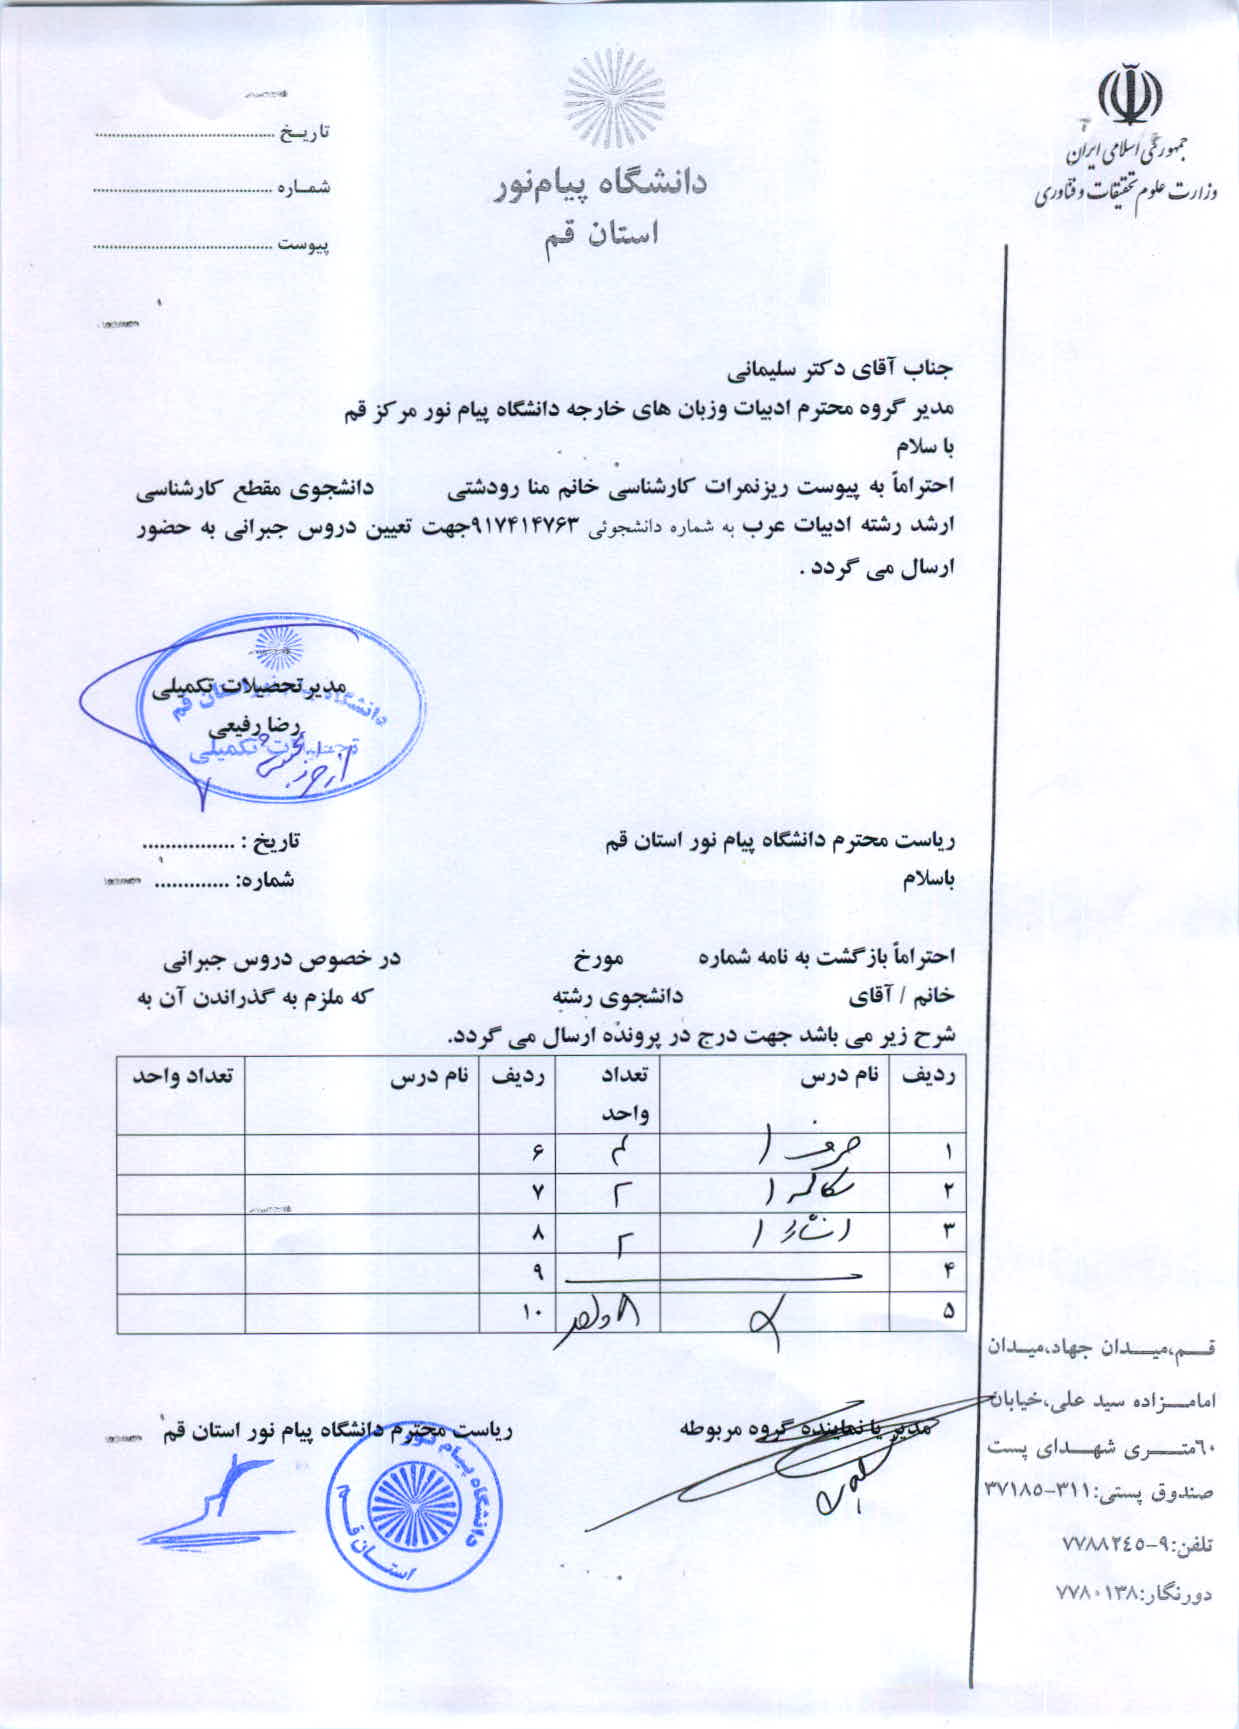 جمهوری اسلامی ایران
وزارت علوم تحقیقات و فناوری
دانشگاه پیام‌نور
استان قم
تاریـخ ........................................
شمـاره ........................................
پیوست ........................................
جناب آقای دکتر سلیمانی
مدیر گروه محترم ادبیات وزبان های خارجه دانشگاه پیام نور مرکز قم
با سلام
احتراماً به پیوست ریزنمرات کارشناسی خانم منا رودشتی دانشجوی مقطع کارشناسی
ارشد رشته ادبیات عرب به شماره دانشجوئی ۹۱۷۴۱۴۷۶۳جهت تعیین دروس جبرانی به حضور
ارسال می گردد .
مدیرتحصیلات تکمیلی
رضا رفیعی
تحصیلات تکمیلی
ریاست محترم دانشگاه پیام نور استان قم
تاریخ : ................
باسلام
شماره: .............
احتراماً بازگشت به نامه شماره مورخ در خصوص دروس جبرانی
خانم / آقای دانشجوی رشته که ملزم به گذراندن آن به
شرح زیر می باشد جهت درج در پرونده ارسال می گردد.
ردیف نام درس تعداد واحد ردیف نام درس تعداد واحد
۱ صرف ۱ ۴ ۶
۲ مکالمه ۱ ۲ ۷
۳ انشاء ۱ ۲ ۸
۴ ۹
۵ ۸ واحد ۱۰
مدیر یا نماینده گروه مربوطه
ریاست محترم دانشگاه پیام نور استان قم
دانشگاه پیام نور
استـان قـم
قــم،میــدان جهاد،میـدان
امامــزاده سید علی،خیابان
٦٠متــری شهــدای پست
صندوق پستی:۳۱۱-۳۷۱۸۵
تلفن:۹-۷۷۸۸۲٤٥
دورنگار:۷۷۸۰۱۳۸